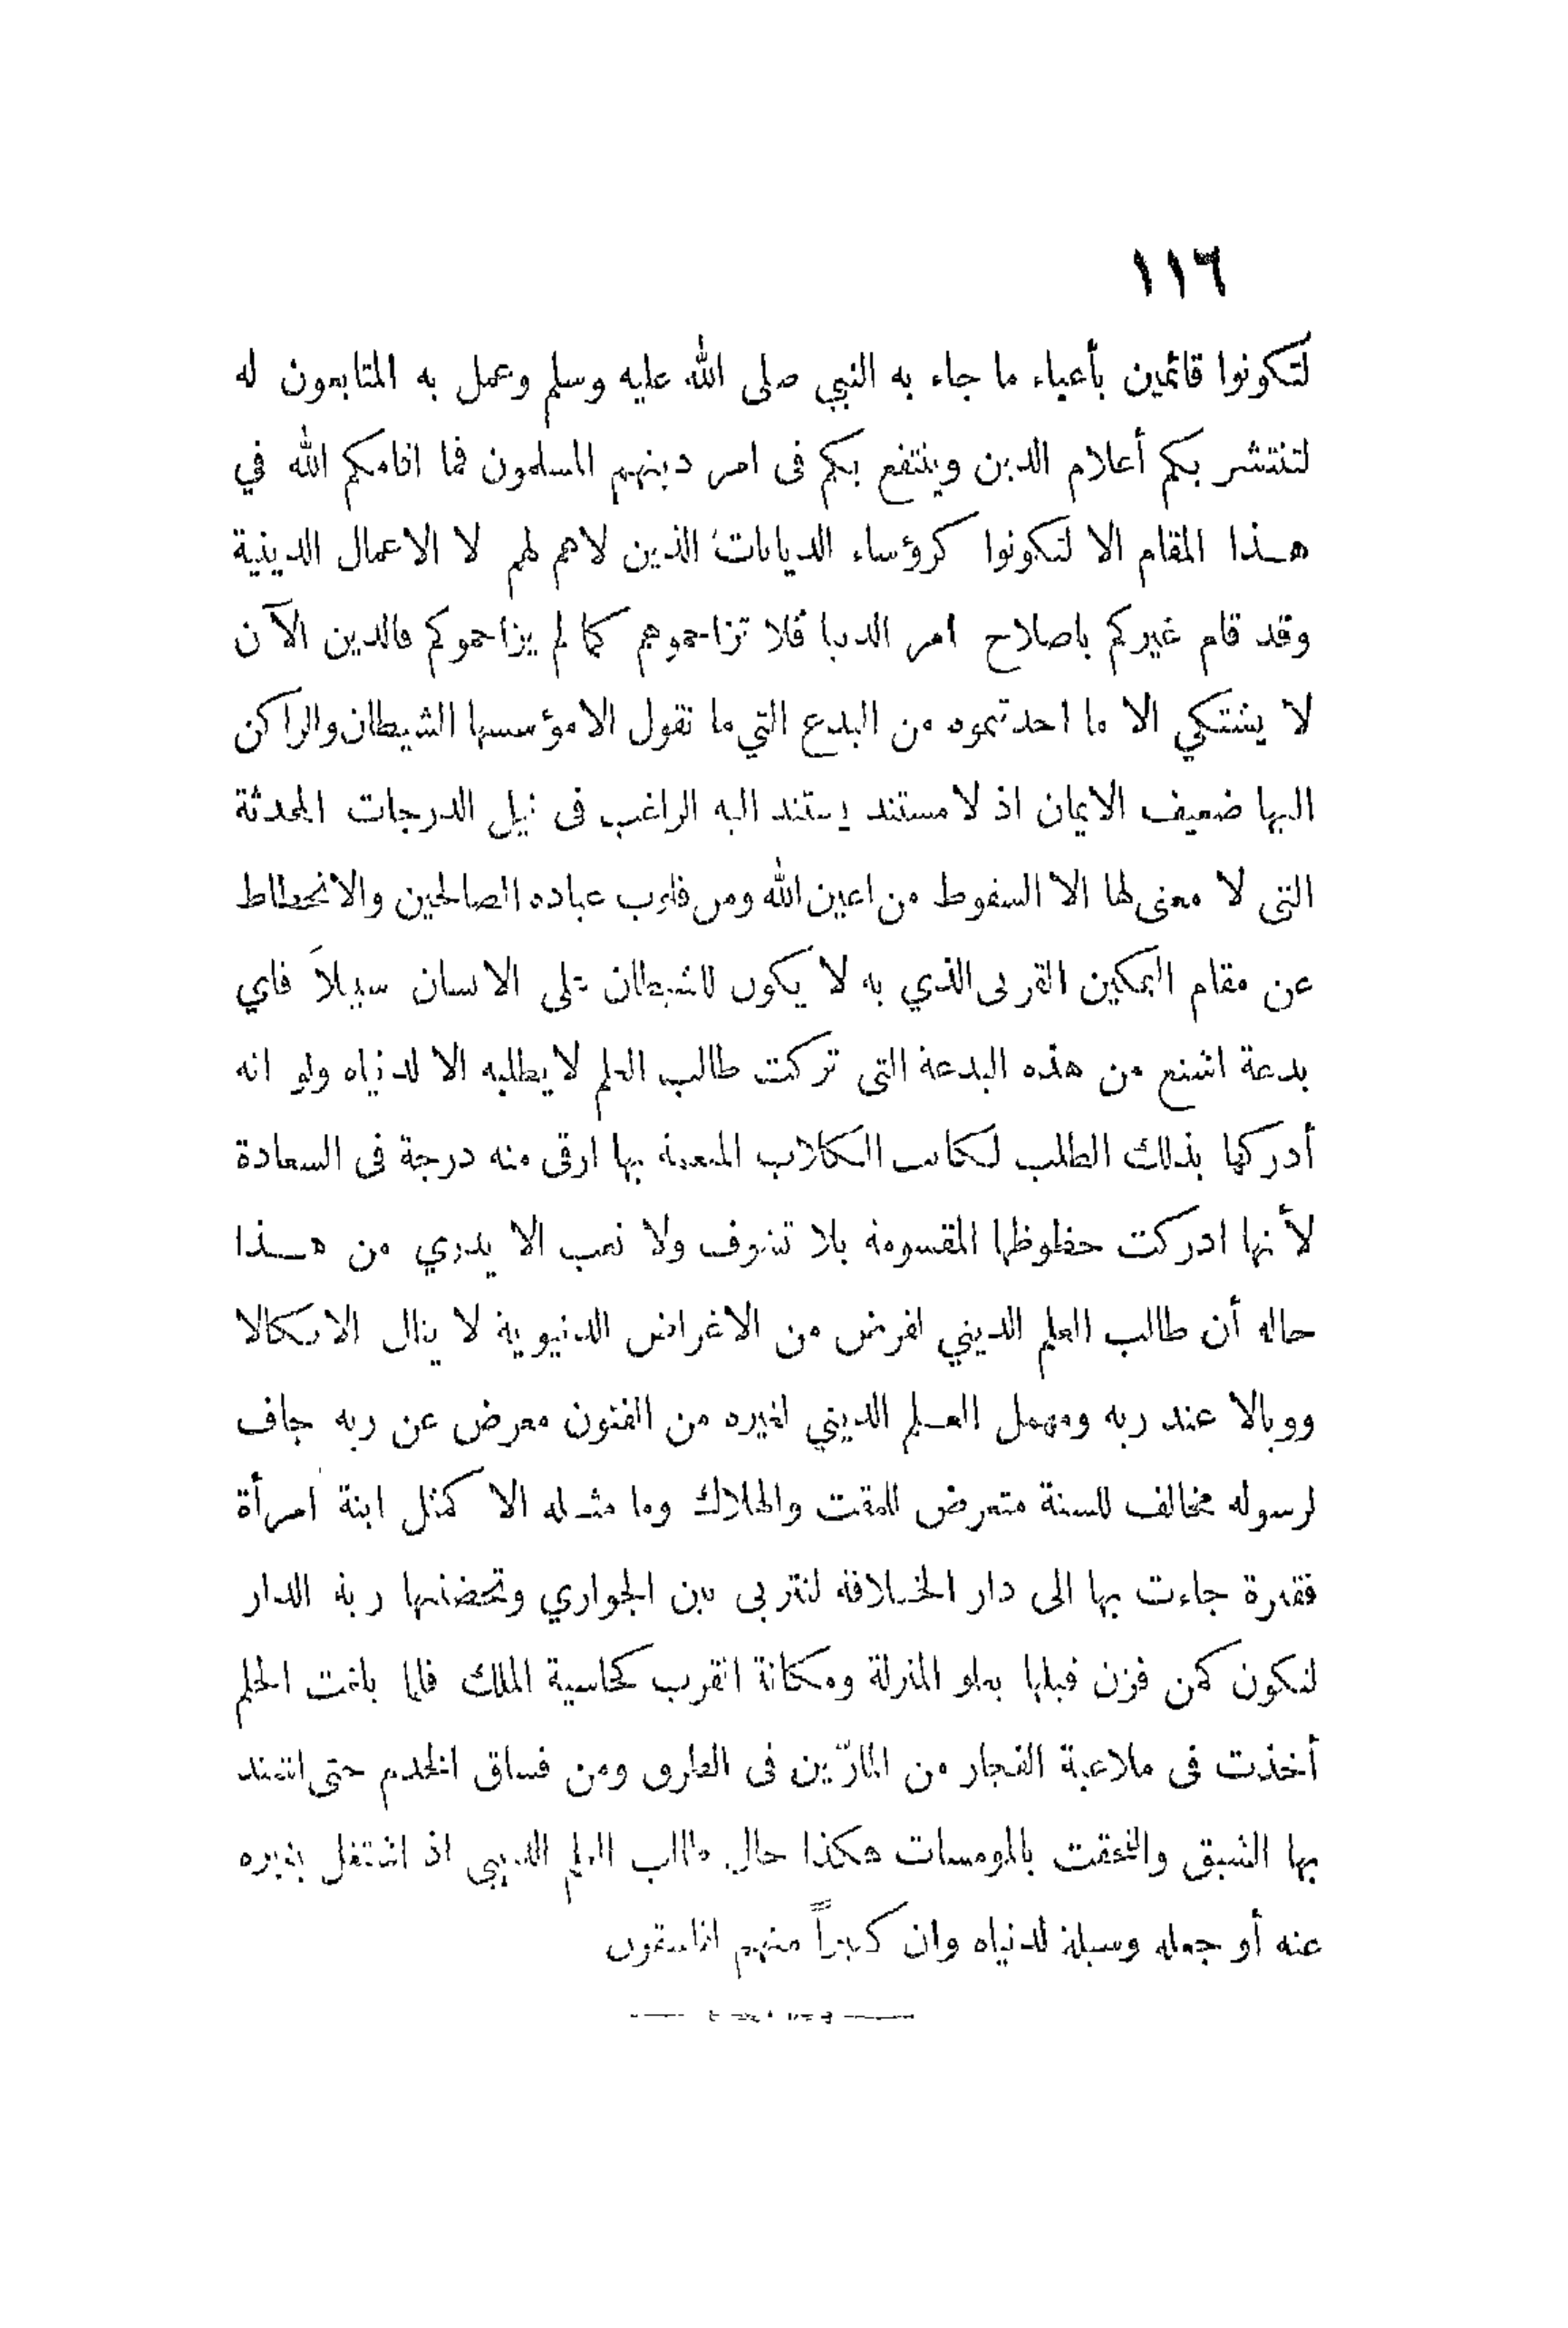 ١١٦
لتكونوا قائمين بأعباء ما جاء به النبي صلى الله عليه وسلم وعمل به المتابعون له
لتنتشر بكم أعلام الدين وينتفع بكم فى امر دينهم المسلمون فما اقامكم الله في
هذا المقام الا لتكونوا كرؤساء الديانات الذين لاهم لهم لا الاعمال الدينية
وقد قام غيركم باصلاح امر الدنيا فلا تزاحموهم كما لم يزاحموكم فالدين الآن
لا يشتكي الا ما احدثتموه من البدع التي ما نقول الا مؤسسها الشيطان والراكن
اليها ضعيف الايمان اذ لا مستند يستند اليه الراغب فى نيل الدرجات المحدثة
التى لا معنى لها الا السقوط من اعين الله ومن قلوب عباده الصالحين والانحطاط
عن مقام التمكين القربى الذي به لا يكون للشيطان على الانسان سبيلاً فاي
بدعة اشنع من هذه البدعة التى تركت طالب العلم لا يطلبه الا لدنياه ولو انه
أدركها بذلك الطلب لكانت الكلاب المنعمة بها ارقى منه درجة فى السعادة
لأنها ادركت حظوظها المقسومة بلا تشوف ولا تعب الا يدري من هذا
حاله أن طالب العلم الديني لغرض من الاغراض الدنيوية لا ينال الا نكالا
ووبالا عند ربه ومهمل العلم الديني لغيره من الفنون معرض عن ربه جاف
لرسوله مخالف للسنة متعرض للمقت والهلاك وما مثله الا كمثل ابنة امرأة
فقيرة جاءت بها الى دار الخلافة لتتربى بين الجواري وتحضنها ربة الدار
لتكون كمن فزن قبلها بعلو المنزلة ومكانة القرب كحاسية الملك فلما بلغت الحلم
أخذت فى ملاعبة الفجار من المارّين فى الطرق ومن فساق الخدم حتى اشتد
بها الشبق والتحقت بالمومسات هكذا حال طالب العلم الديني اذ اشتغل بغيره
عنه أو جعله وسيلة لدنياه وان كثيراً منهم لفاسقون